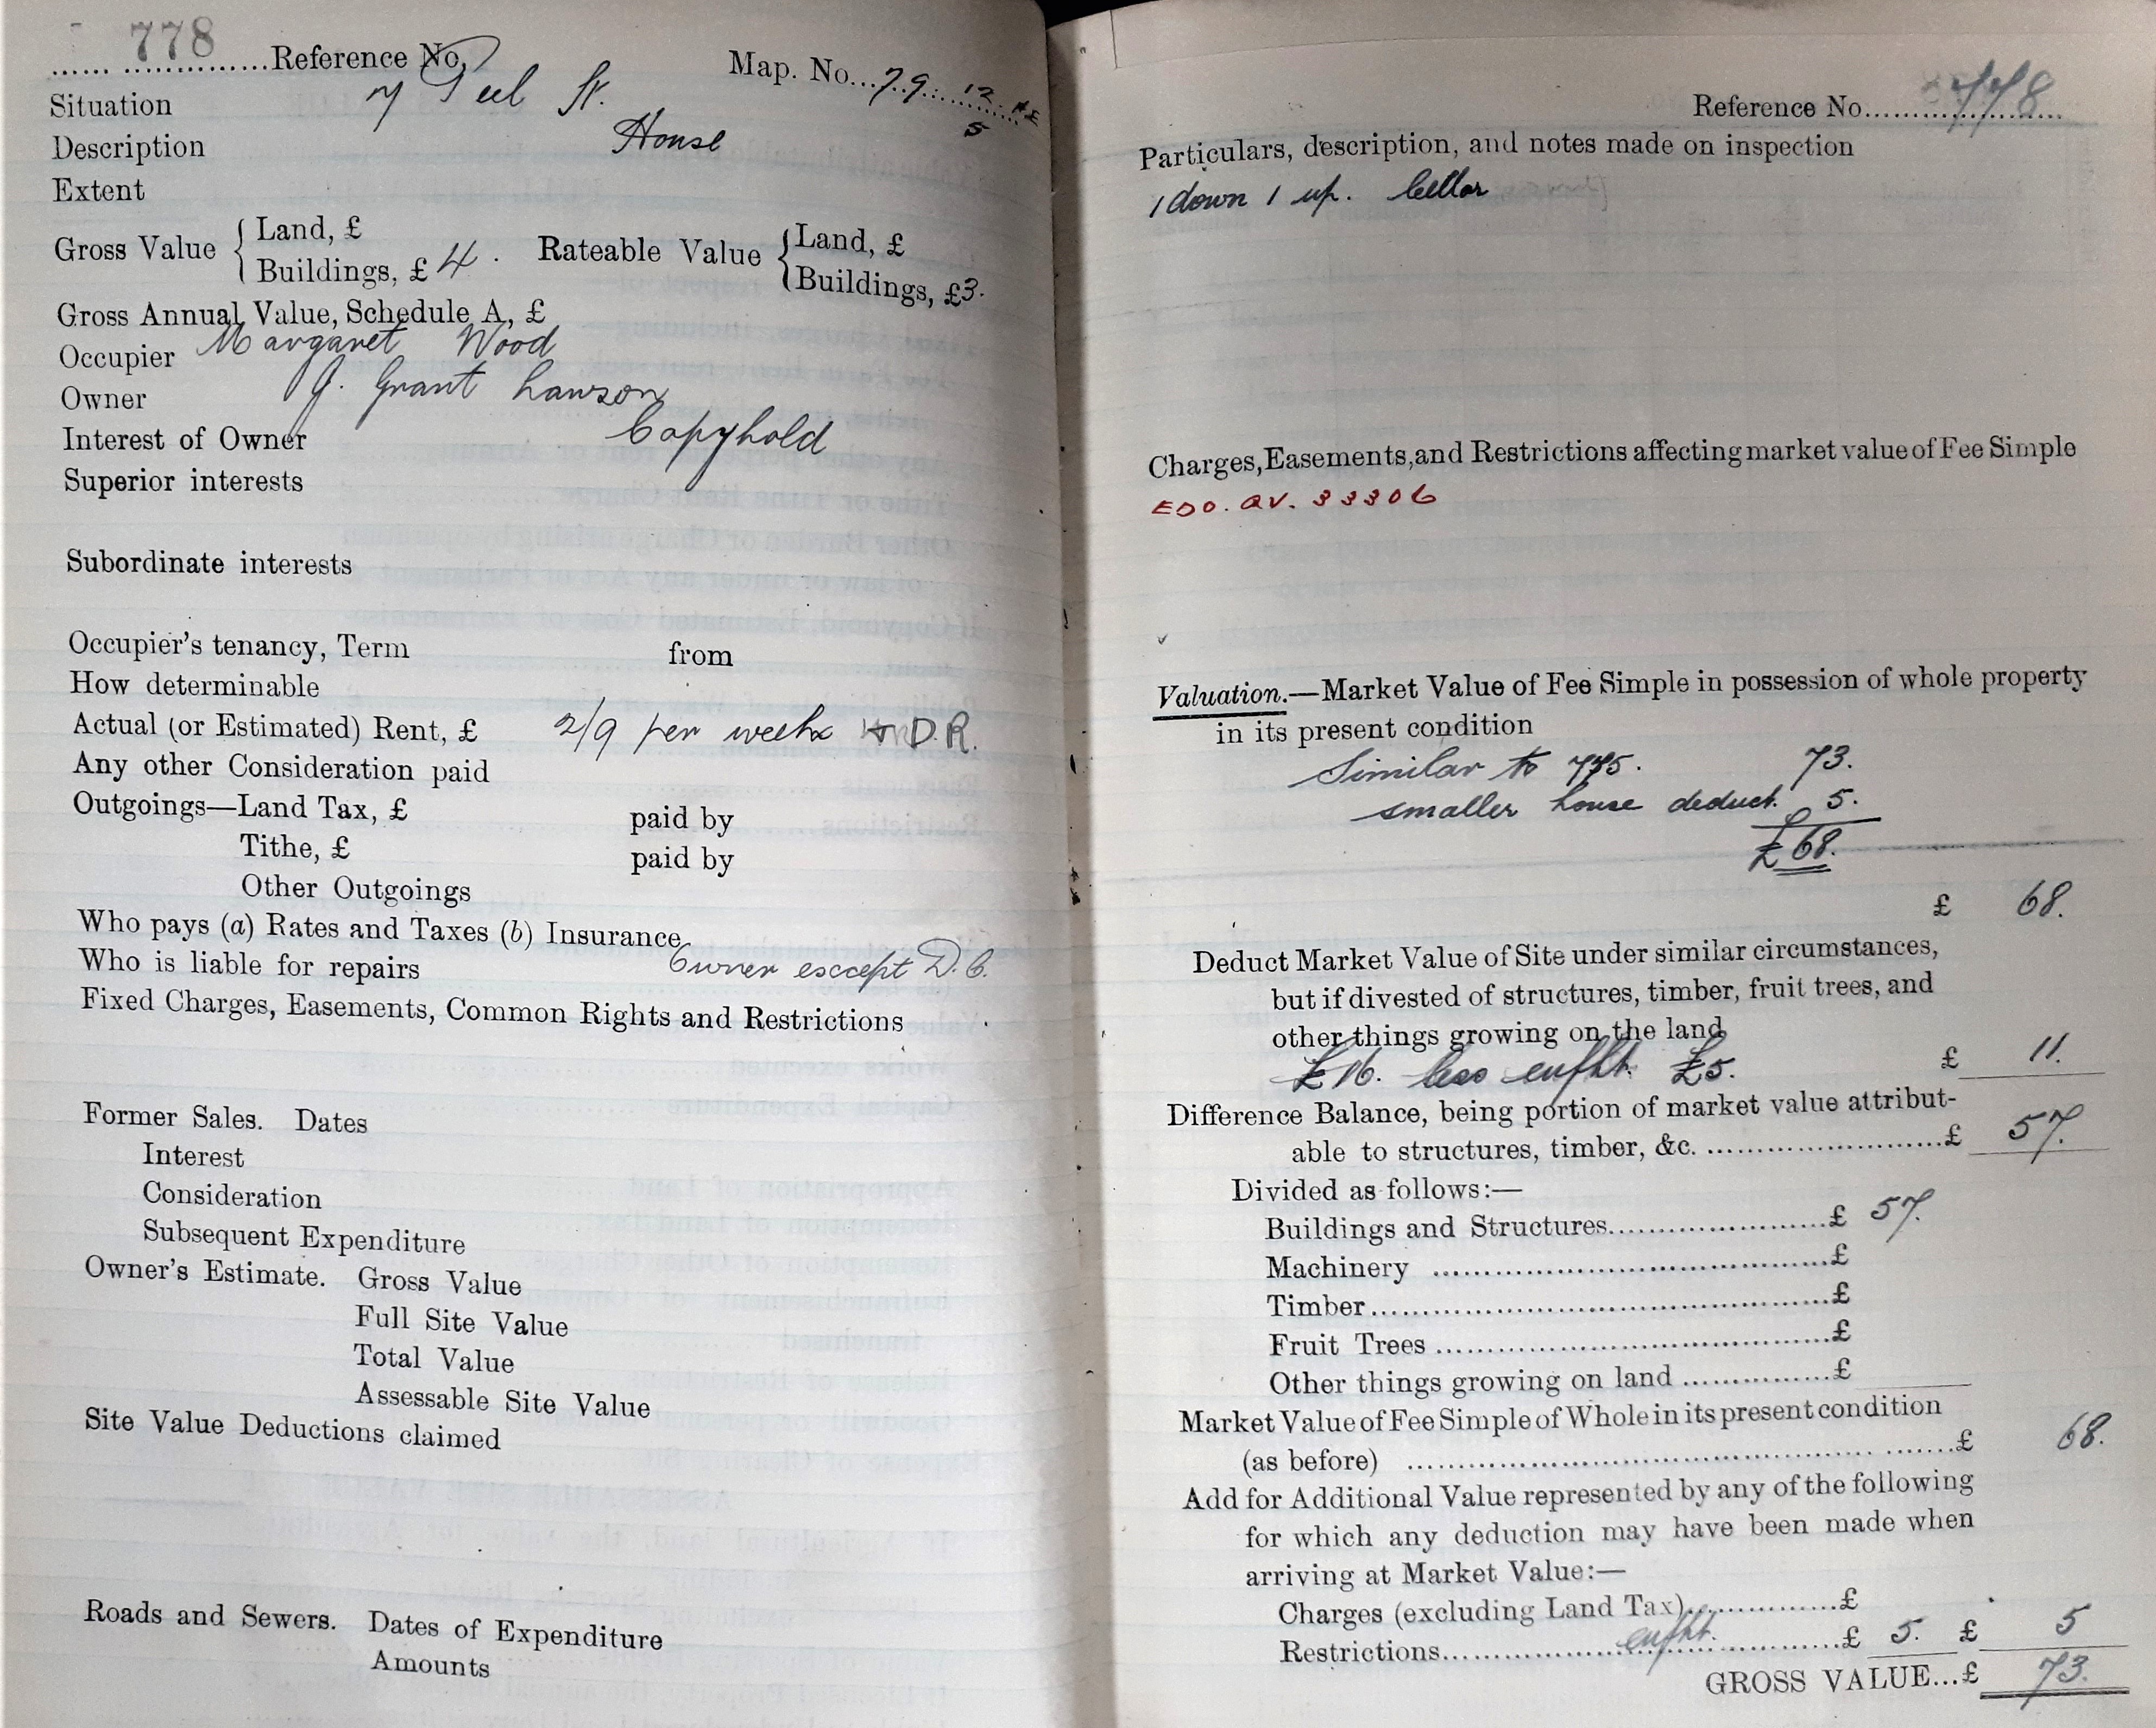 778
Reference No. Map. No. 79 12 NE
5
Situation 7 Peel St.
Description House
Extent
Gross Value { Land, £ Rateable Value { Land, £
Buildings, £ 4. Buildings, £3.
Gross Annual Value, Schedule A, £
Occupier Margaret Wood
Owner J. Grant Lawson
Interest of Owner Copyhold
Superior interests
Subordinate interests
Occupier's tenancy, Term from
How determinable
Actual (or Estimated) Rent, £ 2/9 per week D.R.
Any other Consideration paid
Outgoings—Land Tax, £ paid by
Tithe, £ paid by
Other Outgoings
Who pays (a) Rates and Taxes (b) Insurance
Who is liable for repairs Owner except D.C.
Fixed Charges, Easements, Common Rights and Restrictions
Former Sales. Dates
Interest
Consideration
Subsequent Expenditure
Owner's Estimate. Gross Value
Full Site Value
Total Value
Assessable Site Value
Site Value Deductions claimed
Roads and Sewers. Dates of Expenditure
Amounts
Reference No. 778
Particulars, description, and notes made on inspection
1 down 1 up. Cellar
Charges, Easements, and Restrictions affecting market value of Fee Simple
EDO. QV. 33306
Valuation.—Market Value of Fee Simple in possession of whole property
in its present condition
Similar to 775. 73.
smaller house deduct. 5.
£68.
£ 68.
Deduct Market Value of Site under similar circumstances,
but if divested of structures, timber, fruit trees, and
other things growing on the land
£16. less enfht. £5. £ 11.
Difference Balance, being portion of market value attribut-
able to structures, timber, &c. £ 57.
Divided as follows:—
Buildings and Structures £ 57.
Machinery £
Timber £
Fruit Trees £
Other things growing on land £
Market Value of Fee Simple of Whole in its present condition
(as before) £ 68.
Add for Additional Value represented by any of the following
for which any deduction may have been made when
arriving at Market Value:—
Charges (excluding Land Tax) £
Restrictions enfht. £ 5. £ 5
GROSS VALUE...£ 73.